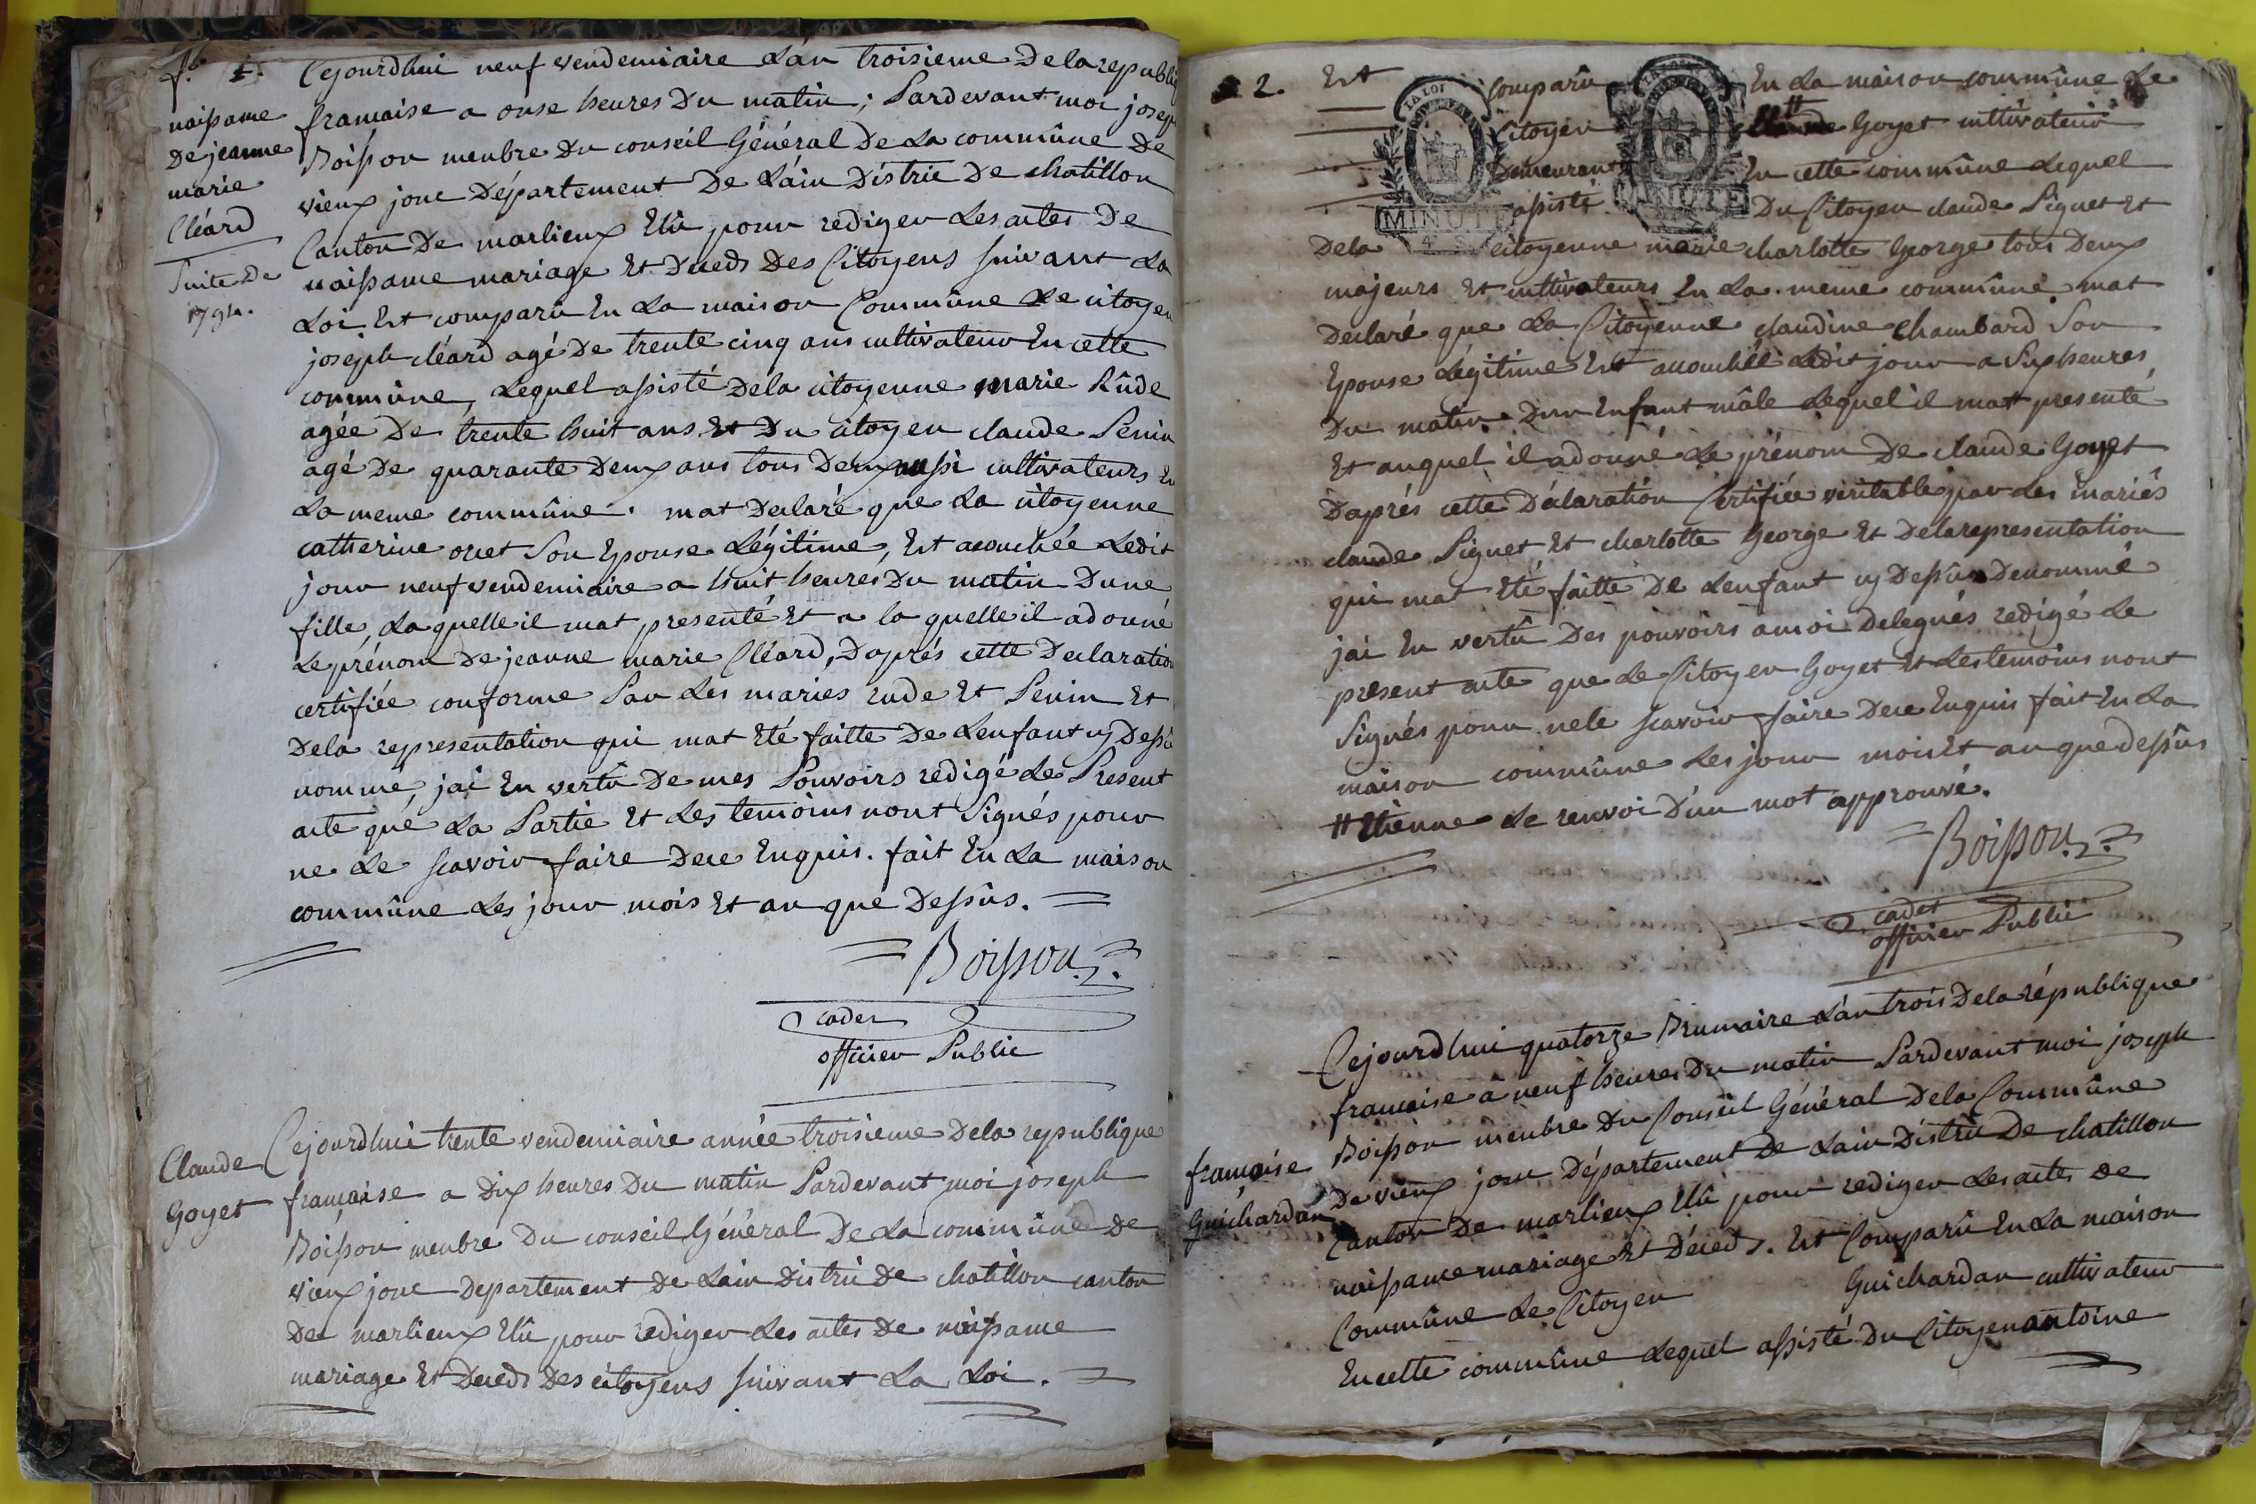 naissance
De jeanne
marie
Cléard
Suite de
1794.
Cejourdhui neuf vendemiaire L'an troisieme Dela republi
francaise a onse heures Du matin; Pardevant moi josep
Boisson menbre Du conseil Général De La commûne De
vieux jonc Département De L'ain District De chatillon
Canton De marlieux Elû pour rediger Les actes De
naissance mariage Et Deceds Des Citoyens suivant La
Loi Est comparû En La maison Commûne Le citoyen
joseph cléard agé De trente cinq ans cultivateur En cette
commûne, Lequel assisté Dela citoyenne marie Rûde
agée De trente huit ans Et Du citoyen claude Penin
agé De quarante Deux ans tous Deux aussi cultivateurs En
La meme commûne. mat Declaré que La citoyenne
catherine oret Son Epouse Légitime, Est acouchée Ledit
jour neuf vendemiaire a huit heures Du matin Dune
fille, Laquelle il mat presenté Et a la quelle il adonné
Le prénom De jeanne marie Cléard, Daprés cette Declaration
certifiée conforme Par Les mariés rude Et Penin Et
Dela representation qui mat Eté faitte De Lenfant cy Dessu
nommé, jai En vertû De mes Pouvoirs redigé Le Present
acte que La Partie Et Les temoins nont Signés pour
ne Le scavoir faire Dece Enquis. fait En La maison
commûne Les jour mois Et an que Dessûs.
Boisson
cadet
officier Public
Claude
Goyet
Cejourdhui trente vendemiaire année troisieme Dela republique
française a Dix heures Du matin Pardevant moi joseph
Boisson menbre Du conseil Général De La commûne De
vieux jonc Departement De Lain District De chatillon canton
De marlieux Elû pour rediger Les actes De naissance
mariage Et Deceds Des citoyens suivant La Loi.
2. Est comparû En La maison commûne Le
Citoyen Goyet cultivateur
Demeurant En cette commûne Lequel
assisté Du Citoyen claude Piguet Et
Dela citoyenne marie charlotte George tous Deux
majeurs Et cultivateurs En La meme commûne mat
Declaré que La Citoyenne claudine chambard Son
Epouse Légitime Est acouchée Ledit jour a Six heures
Du matin Dun Enfant mâle Lequel il mat presenté
Et auquel il adonné Le prénom De claude Goyet
Daprés cette Déclaration Certifiée véritable par Les mariés
claude Piguet Et charlotte George Et Dela representation
qui mat Eté faitte De Lenfant cy Dessûs Denommé
jai En vertû Des pouvoirs amoi Delegués redigé Le
present acte que Le Citoyen Goyet Et Les temoins nont
Signés pour nele scavoir faire Dece Enquis fait En La
maison commûne Les jour mois Et an que dessûs
# Etienne Le renvoi D'un mot approuvé.
Boisson
cadet
officier Public
française
Guichardan
Cejourdhui quatorze Brumaire L'an trois Dela république
francaise a neuf heures Du matin Pardevant moi joseph
Boisson menbre Du Conseil Général Dela Commûne
De vieux jonc Département De Lain District De chatillon
Canton De marlieux Elû pour rediger Les actes De
naissance mariage Et Déceds. Est Comparû En La maison
Commûne Le Citoyen Guichardan cultivateur
En cette commûne Lequel assisté Du Citoyen antoine
LA LOI
MINUTE
MINUTE